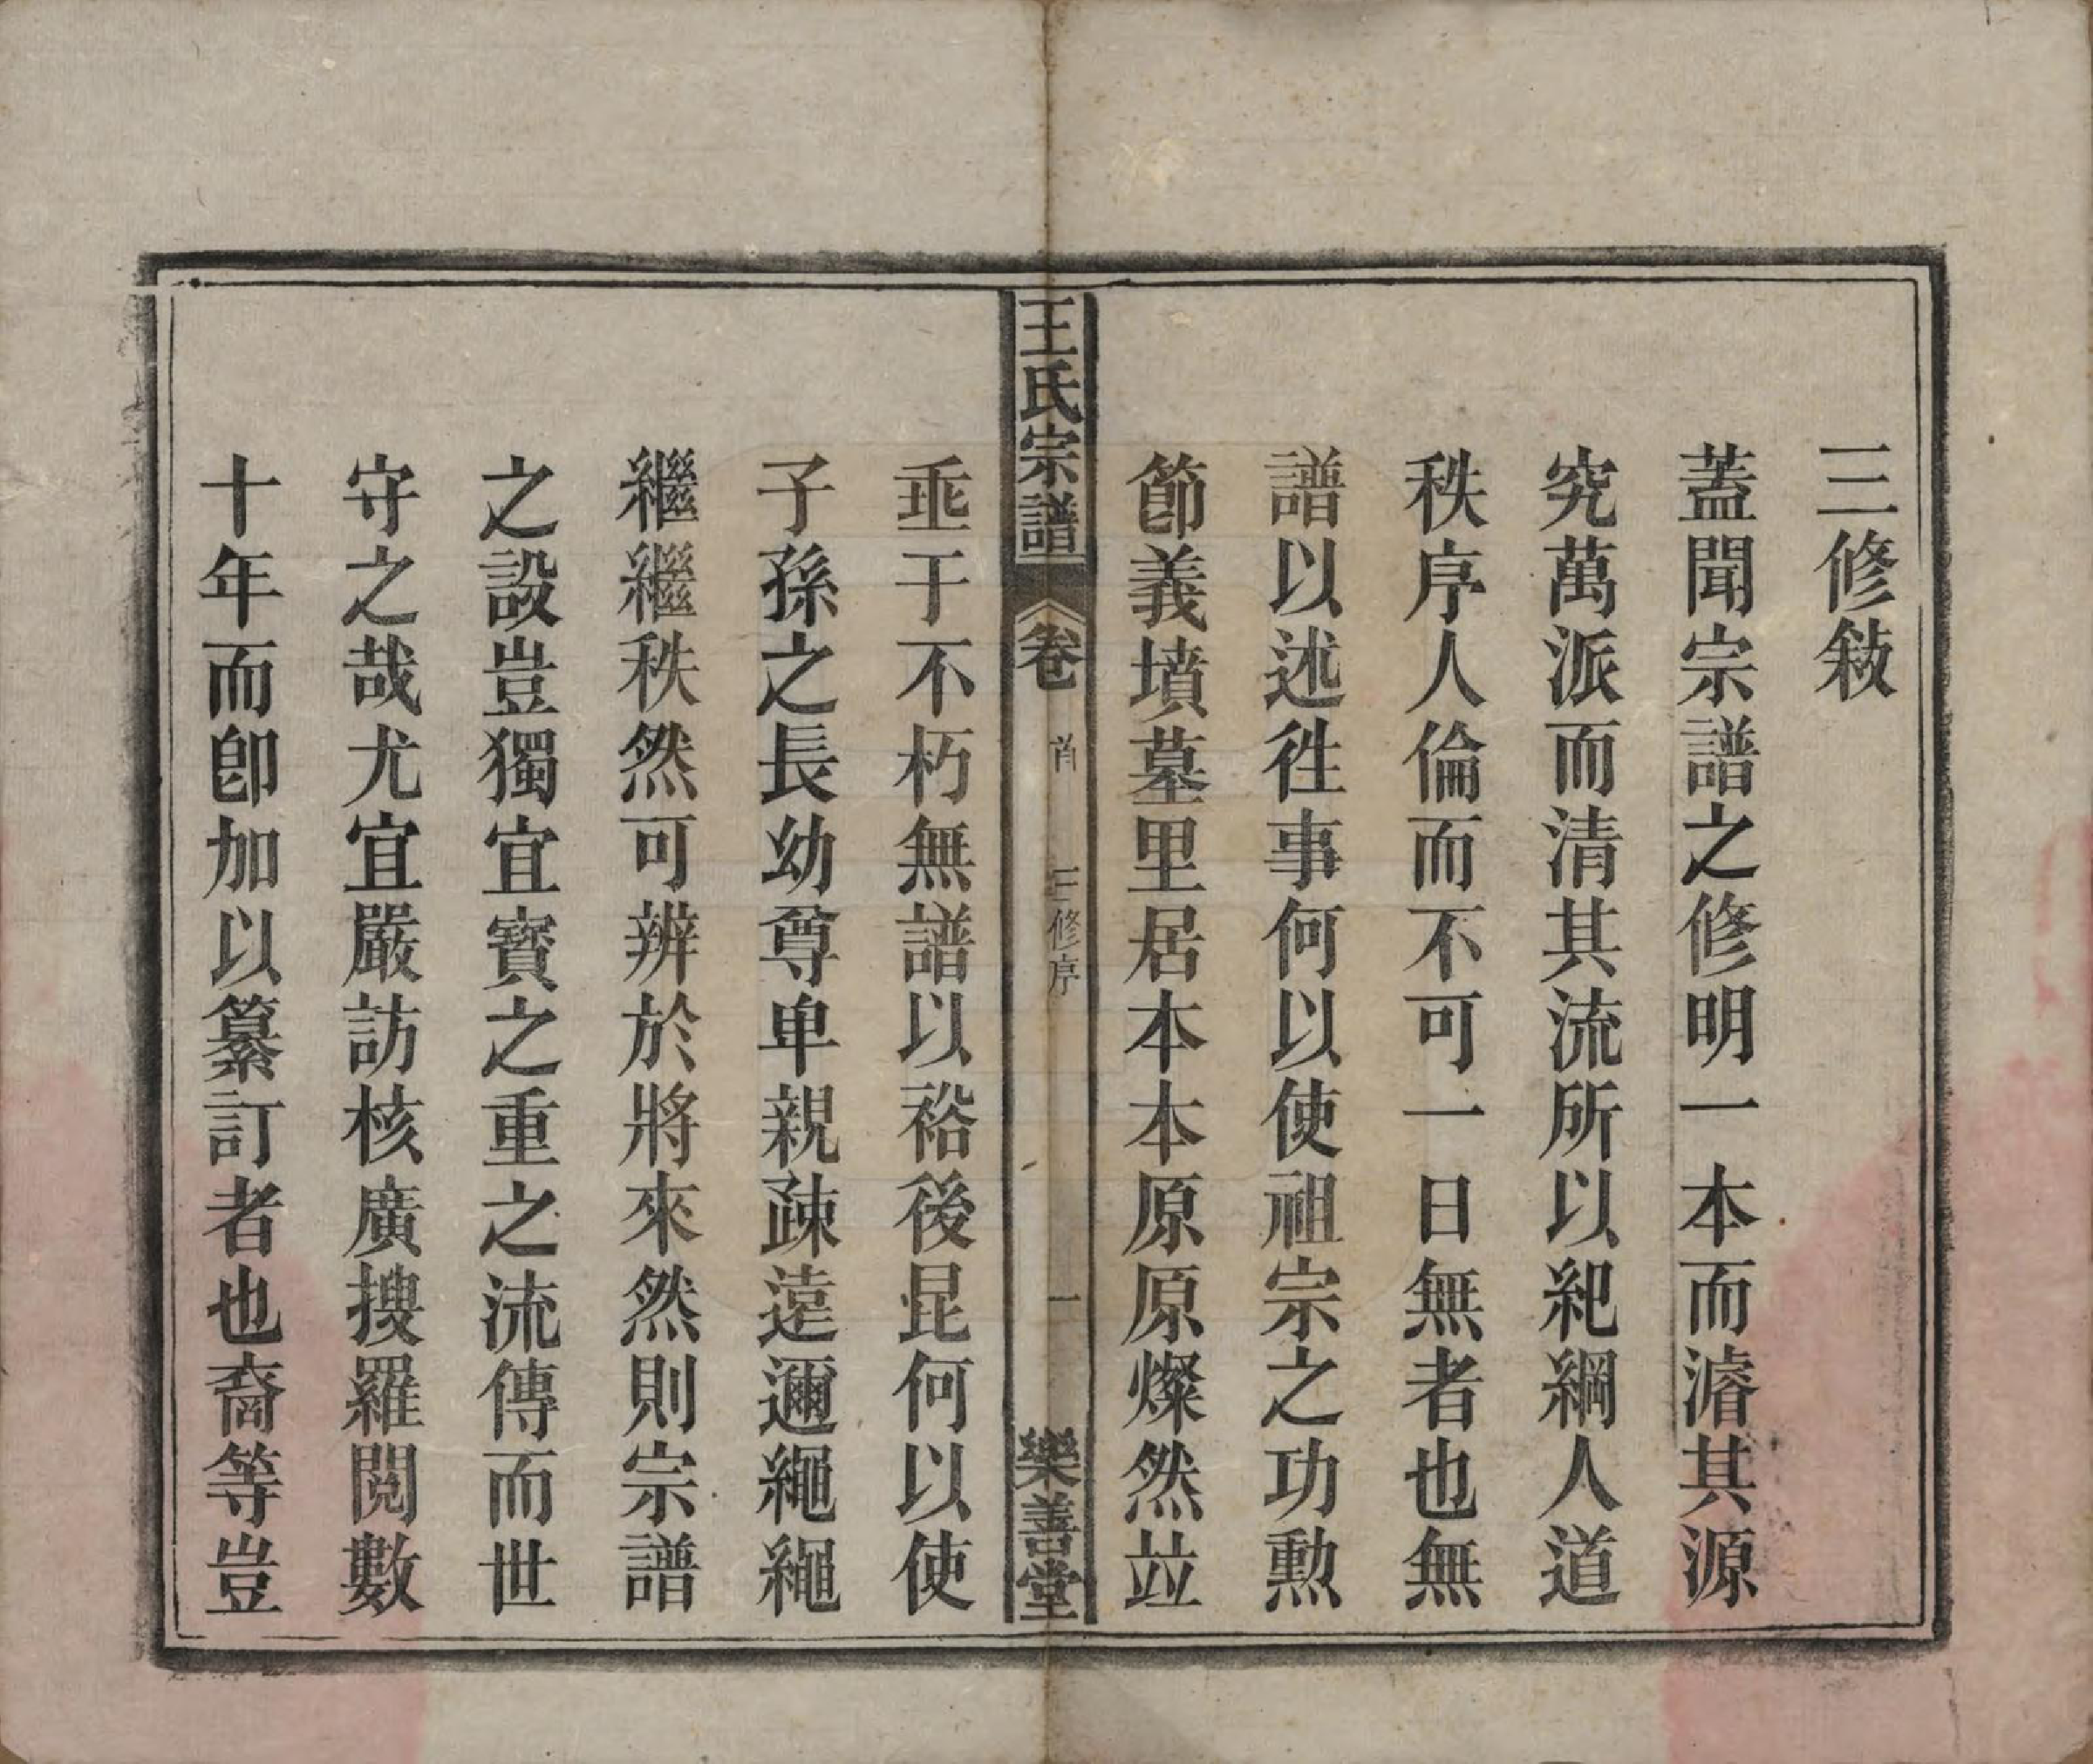 三修敍
蓋聞宗譜之修明一本而濬其源
究萬派而清其流所以紀綱人道
秩序人倫而不可一日無者也無
譜以述徃事何以使祖宗之功勲
節義墳墓里居本本原原燦然竝
王氏宗譜 卷首 三修序 一 樂善堂
垂于不朽無譜以裕後昆何以使
子孫之長幼尊卑親疎遠邇繩繩
繼繼秩然可辨於將來然則宗譜
之設豈獨宜寳之重之流傳而世
守之哉尤宜嚴訪核廣搜羅閱數
十年而卽加以纂訂者也裔等豈